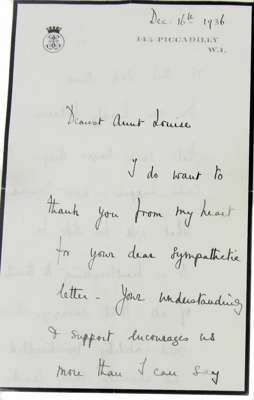 Dec: 16th 1936
145 PICCADILLY
W.1.
Dearest Aunt Louise
I do want to
thank you from my heart
for your dear sympathetic
letter - Your understanding
& support encourages us
more than I can say